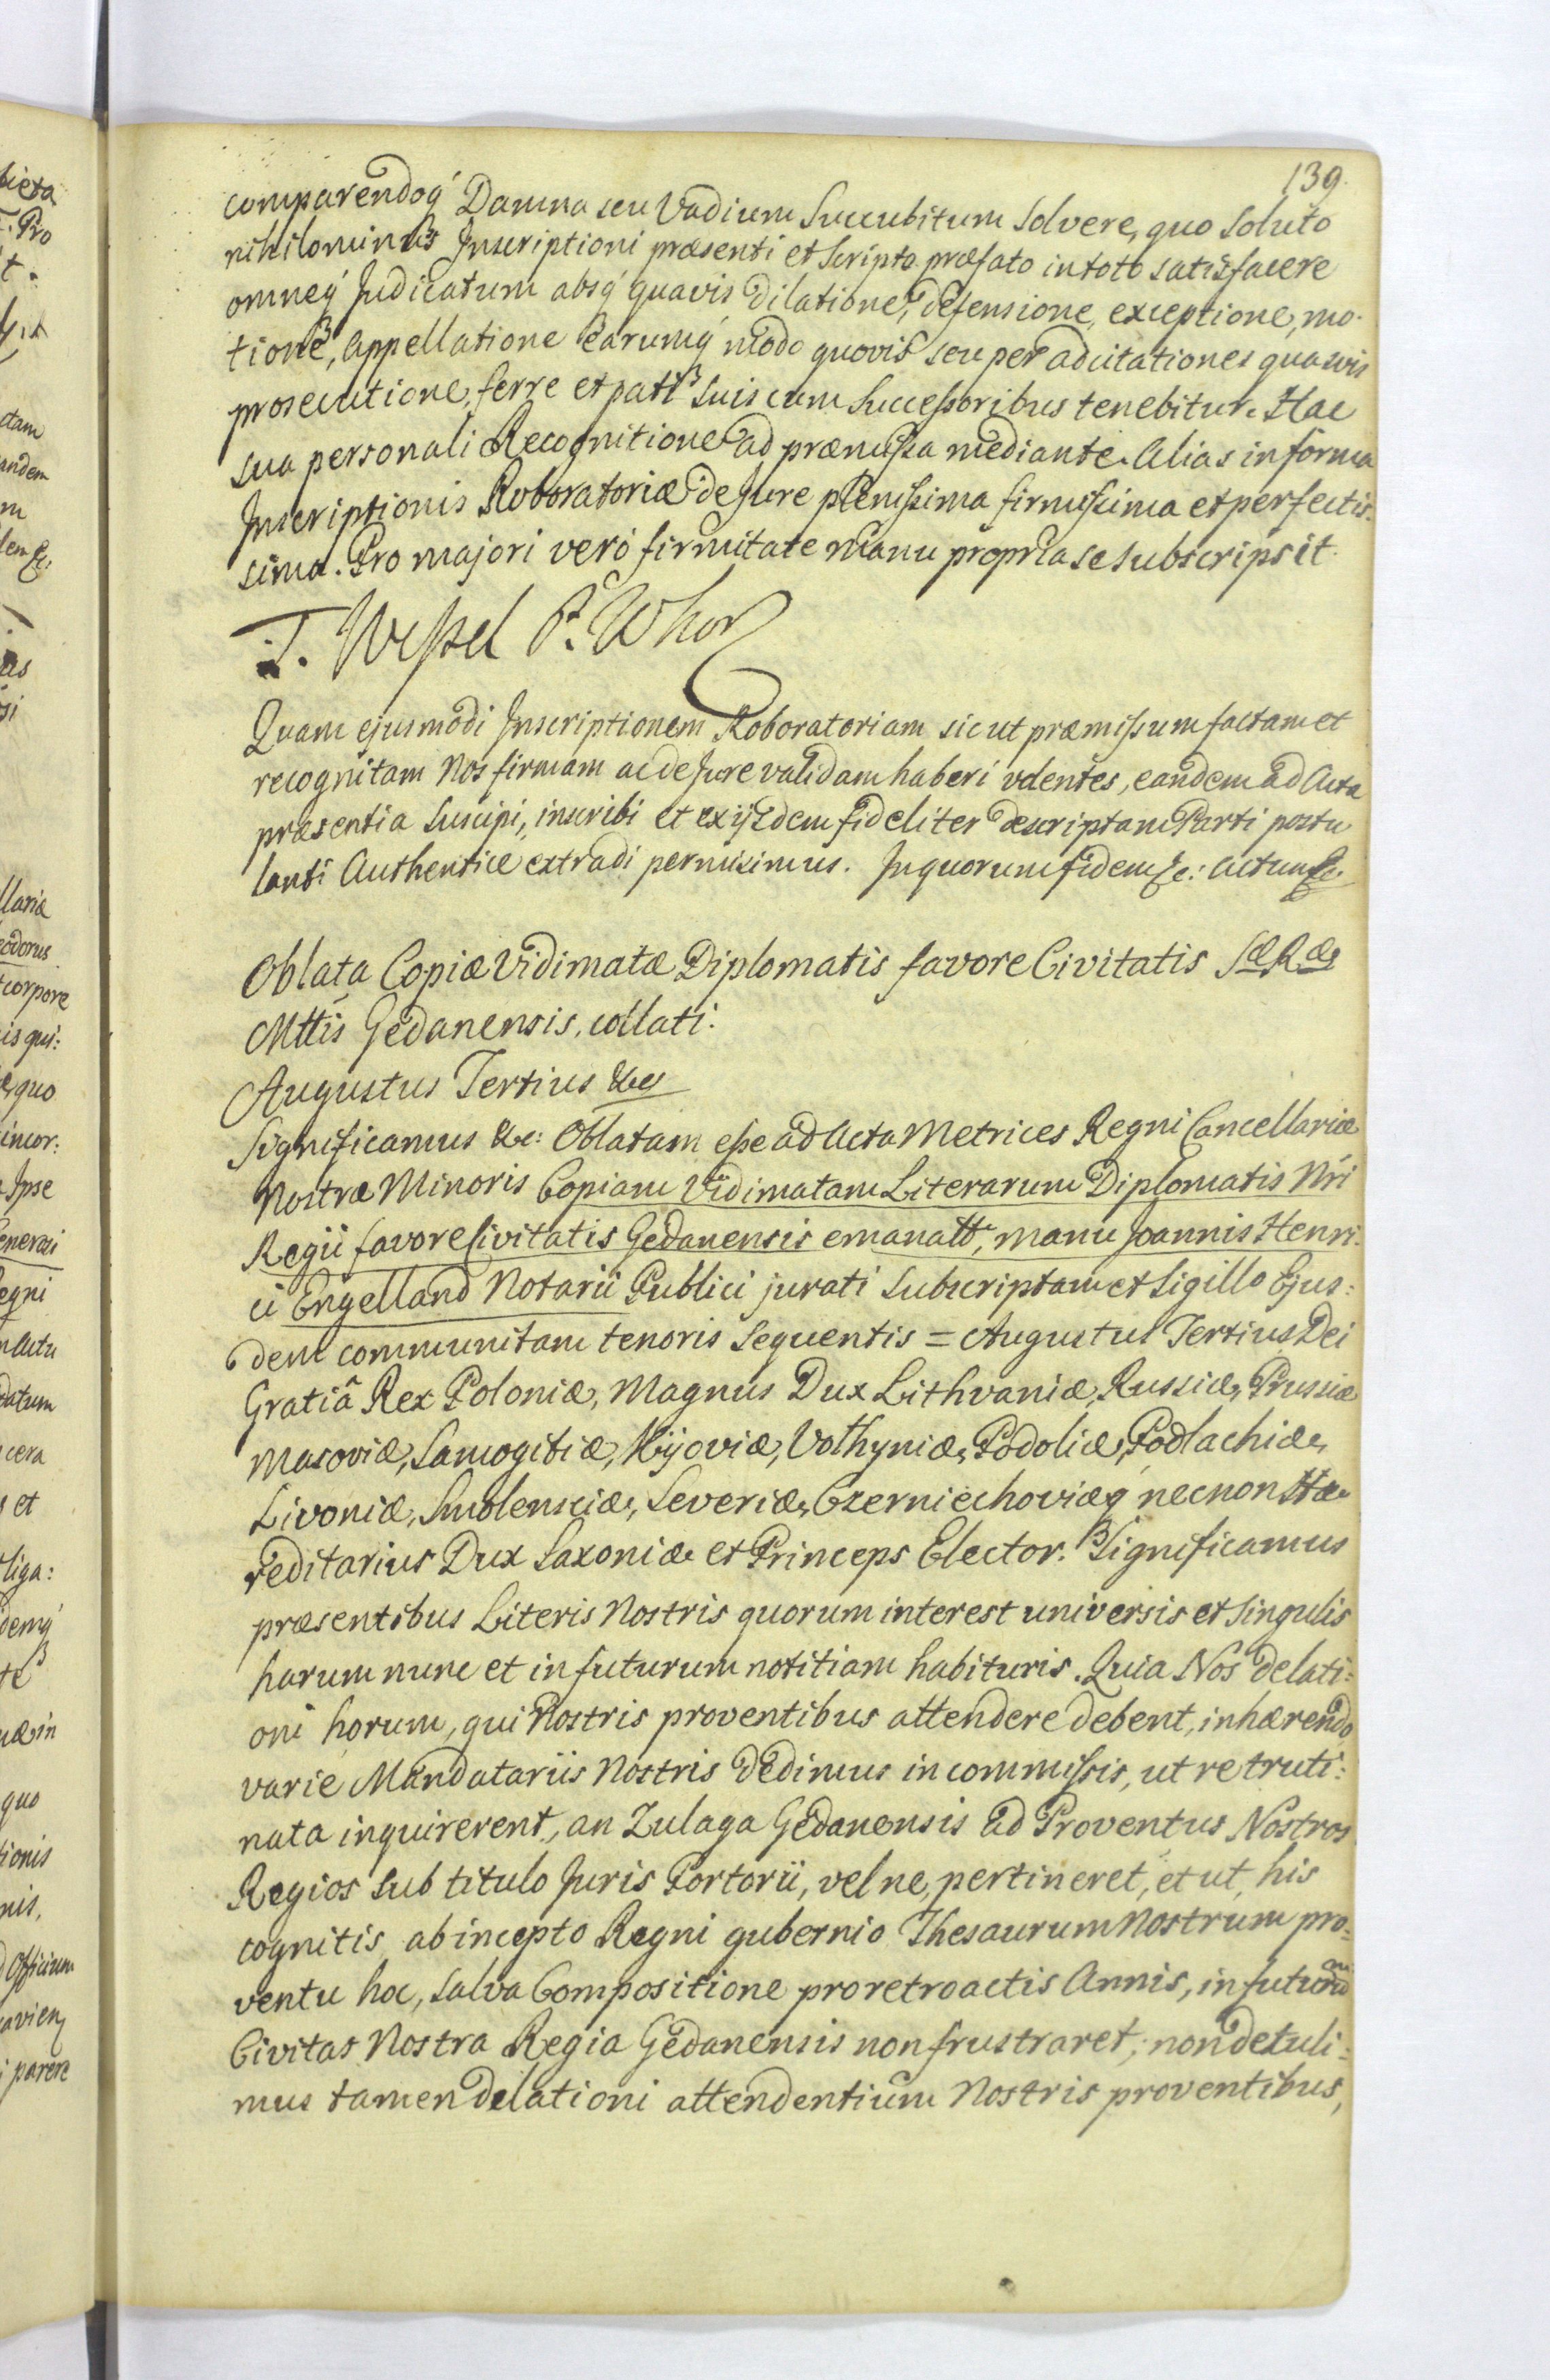 139.
comparendoq́ Damna seu Vadium Succubitum Solvere, quo Soluto
nihilominus Inscriptioni præsenti et Scripto præfato intoto satisfacere
omneq́ Judicatum absq́ quavis dilatione, defensione, exceptione, mo-
tione, appellatione earumq́ modo quovis seu per adcitationes quasvis
prosecutione, ferre et pati Suis cum Successoribus tenebitur. Hac
sua personali Recognitione ad præmissa mediante. Alias in forma
Inscriptionis Roboratoriæ de Jure plenissima firmissima et perfectis:
sima. Pro majori verò firmitate manu propria se subscripsit.
J. Wessel P. Whor
Quam ejusmodi Inscriptionem Roboratoriam sicut præmissum factam et
recognitam Nos firmam ac de Jure validam haberi volentes, eandem ad Acta
præsentia Suscipi, inscribi et ex ijsdem fideliter descriptam Parti postu
lanti Authentice extradi permisimus. In quorum fidem &c: Actum &c.
Oblata Copiæ Vidimatæ Diplomatis favore Civitatis Sæ Ræ
Mttis Gedanensis, collati.
Augustus Tertius &c
Significamus &c: Oblatam esse ad Acta Metrices Regni Cancellariæ
Nostræ Minoris Copiam Vidimatam Literarum Diplomatis Nri
Regii favore Civitatis Gedanensis emanatt, manu Joannis Henri-
ci Engelland Notarii Publici jurati Subscriptam et Sigillo Ejus:
dem communitam tenoris Sequentis = Augustus Tertius Dei
Gratiâ Rex Poloniæ, Magnus Dux Lithvaniæ, Russiæ, Prussiæ
Masoviæ, Samogitiæ, Kijoviæ, Volhyniæ, Podoliæ, Podlachiæ,
Livoniæ, Smolensciæ, Severiæ, Czerniechoviæq́ necnon Hæ-
reditarius Dux Saxoniæ et Princeps Elector. Significamus
præsentibus Literis Nostris quorum interest universis et singulis
harum nunc et in futurum notitiam habituris. Quia Nos delati:
oni horum, qui Nostris proventibus attendere debent, inhærendo
varie Mandatariis Nostris dedimus in commissis, ut re truti:
nata inquirerent, an Zulaga Gedanensis ad Proventus Nostros
Regios sub titulo Juris Portorii, vel ne, pertineret, et ut, his
cognitis ab incepto Regni gubernio Thesaurum Nostrum pro=
ventu hoc, salva Compositione pro retroactis Annis, in futurum
Civitas Nostra Regia Gedanensis non frustraret; non detuli=
mus tamen delationi attendentium Nostris proventibus,